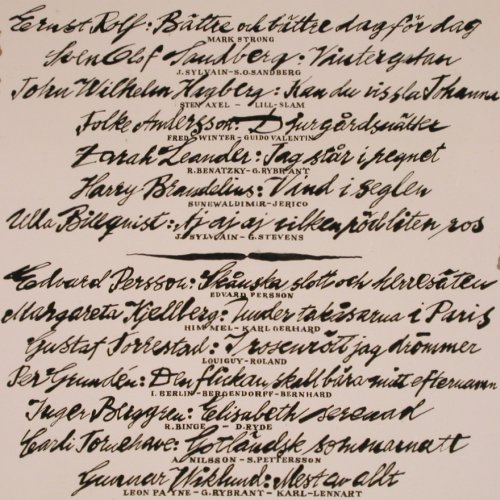 Ernst Rolf: Bättre och bättre dag för dag
MARK STRONG
Sven Olof Sandberg: Vintergatan
J. SYLVAIN - S.O. SANDBERG
John Wilhelm Hagberg: Kan du vissla Johanna
STEN AXEL - LILL-SLAM
Folke Andersson: Djurgårdsnätter
FRED WINTER - GUIDO VALENTIN
Zarah Leander: Jag står i regnet
R. BENATZKY - G. RYBRANT
Harry Brandelius: Vind i seglen
SUNE WALDIMIR - JERICO
Ulla Billquist: Aj aj aj vilken röd liten ros
J. SYLVAIN - G. STEVENS
Edvard Persson: Skånska slott och herresäten
EDVARD PERSSON
Margareta Kjellberg: Under takåsarna i Paris
HIMMEL - KARL GERHARD
Gustaf Torrestad: I rosenrött jag drömmer
LOUIGUY - ROLAND
Per Grundén: Den flickan skall bära mitt efternamn
I. BERLIN - BERGENDORFF - BERNHARD
Inger Berggren: Elisabeth serenad
R. BINGE - D. RYDE
Carli Tornehave: Gotländsk sommarnatt
A. NILSSON - S. PETTERSSON
Gunnar Wiklund: Mest av allt
LEON PAYNE - G. RYBRANT - KARL-LENNART